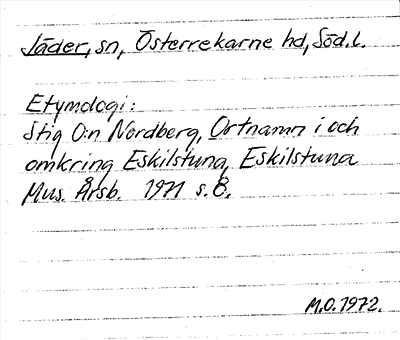 Jäder, sn, Österrekarne hd, Söd.l.
Etymologi:
Stig O:n Nordberg, Ortnamn i och
omkring Eskilstuna, Eskilstuna
Mus. Årsb. 1971 s. 8.
M.O. 1972.